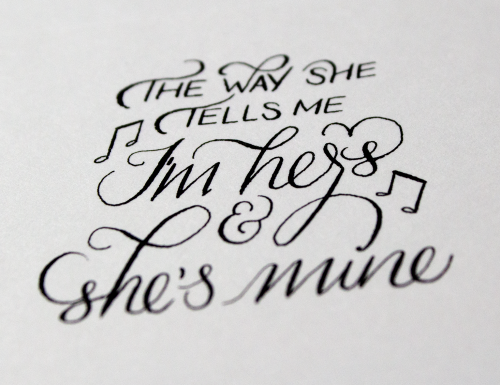 THE WAY SHE
TELLS ME
I'm hers
&
she's mine